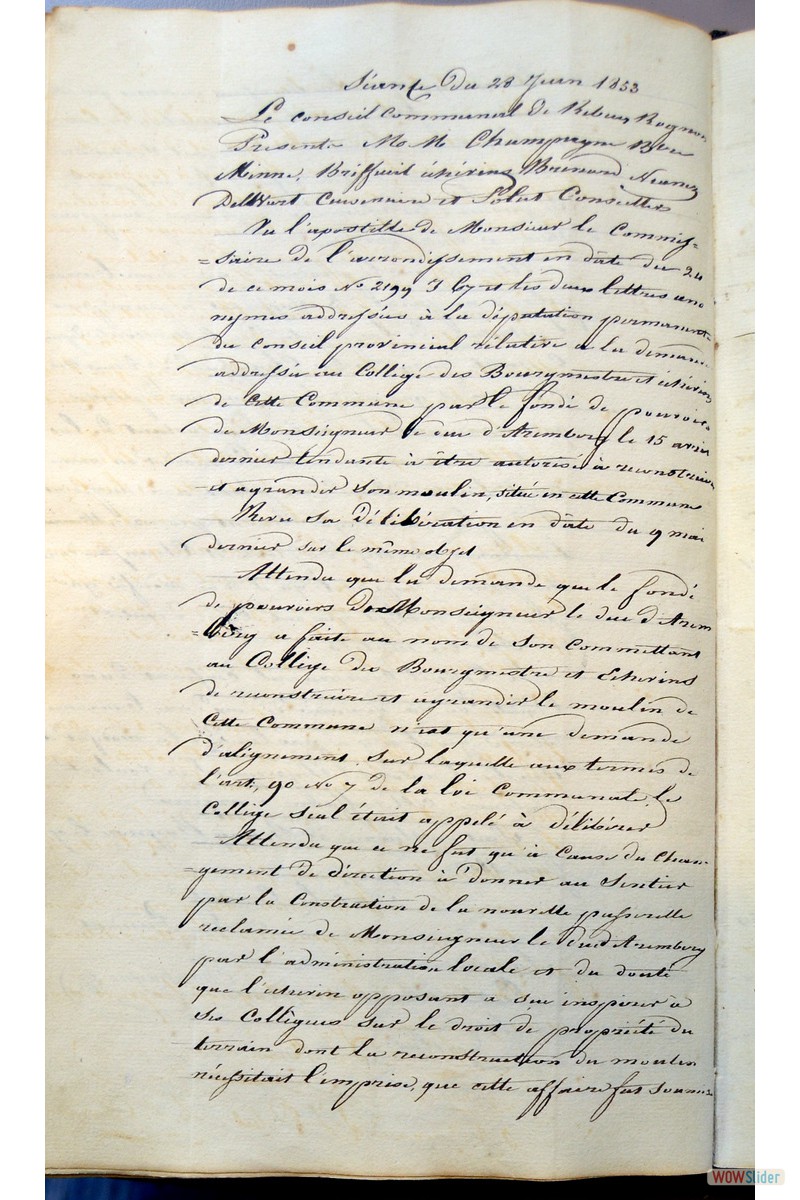 Séance du 28 Juin 1853
Le conseil Communal de Rebecq Rognon
Présents M M Champagne Bre
Minne, Briffeuil échevins Brenard
Delwart et Conseiller
Vu l'apostille de Monsieur le Commis=
=saire de l'arrondissement en date du 24
de ce mois No 2199 et les deux lettres ano
nymes addressées à la députation permanente
du conseil provincial rélative a la demande
addressée au Collège des Bourgmestre et échevins
de Cette Commune par le fondé de pouvoirs
de Monseigneur le duc d'Aremberg le 15 avril
dernier tendante à être autorisé à reconstruire
et agrandir son moulin, situé en cette Commune
Revu sa délibération en date du 9 mai
dernier sur le même objet
Attendu que la demande que le fondé
de pouvoirs de Monseigneur le duc d'Arem
=berg a faite au nom de son Commettant
au Collège des Bourgmestre et Echevins
de reconstruire et agrandir le moulin de
Cette Commune n'est qu'une demande
d'alignement sur laquelle aux termes de
l'art. 90 No 7 de la loi Communale, le
Collège seul était appelé à délibérer
Attendu que ce ne fut qu'à Cause du Chan=
=gement de direction à donner au Sentier
par la Construction de la nouvelle passerelle
reclamée de Monseigneur le duc d'Aremberg
par l'administration locale et du doute
que l'échevin opposant a su inspirer à
Ses Collègues sur le droit de propriété du
terrain dont la reconstruction du moulin
nécessitait l'emprise, que cette affaire fut soumise
WOWSlider